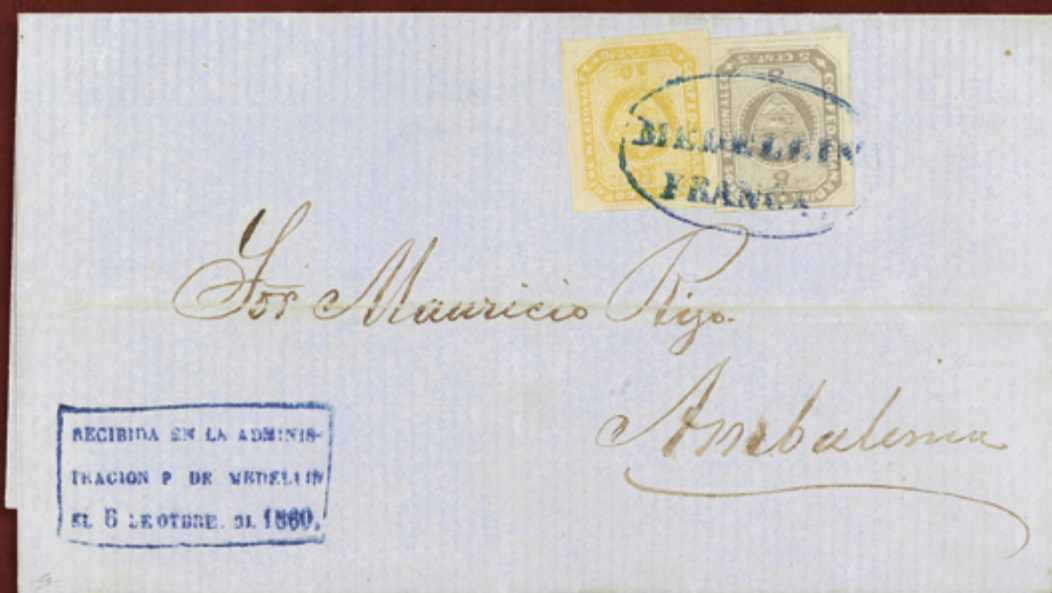 10 CENT.
5 CENT.S
MEDELLIN
FRANCA
Sor Mauricio Rijo.
Ambalema
RECIBIDA EN LA ADMINIS-
TRACION P DE MEDELLIN
EL 6 DE OTBRE. DE 1860.